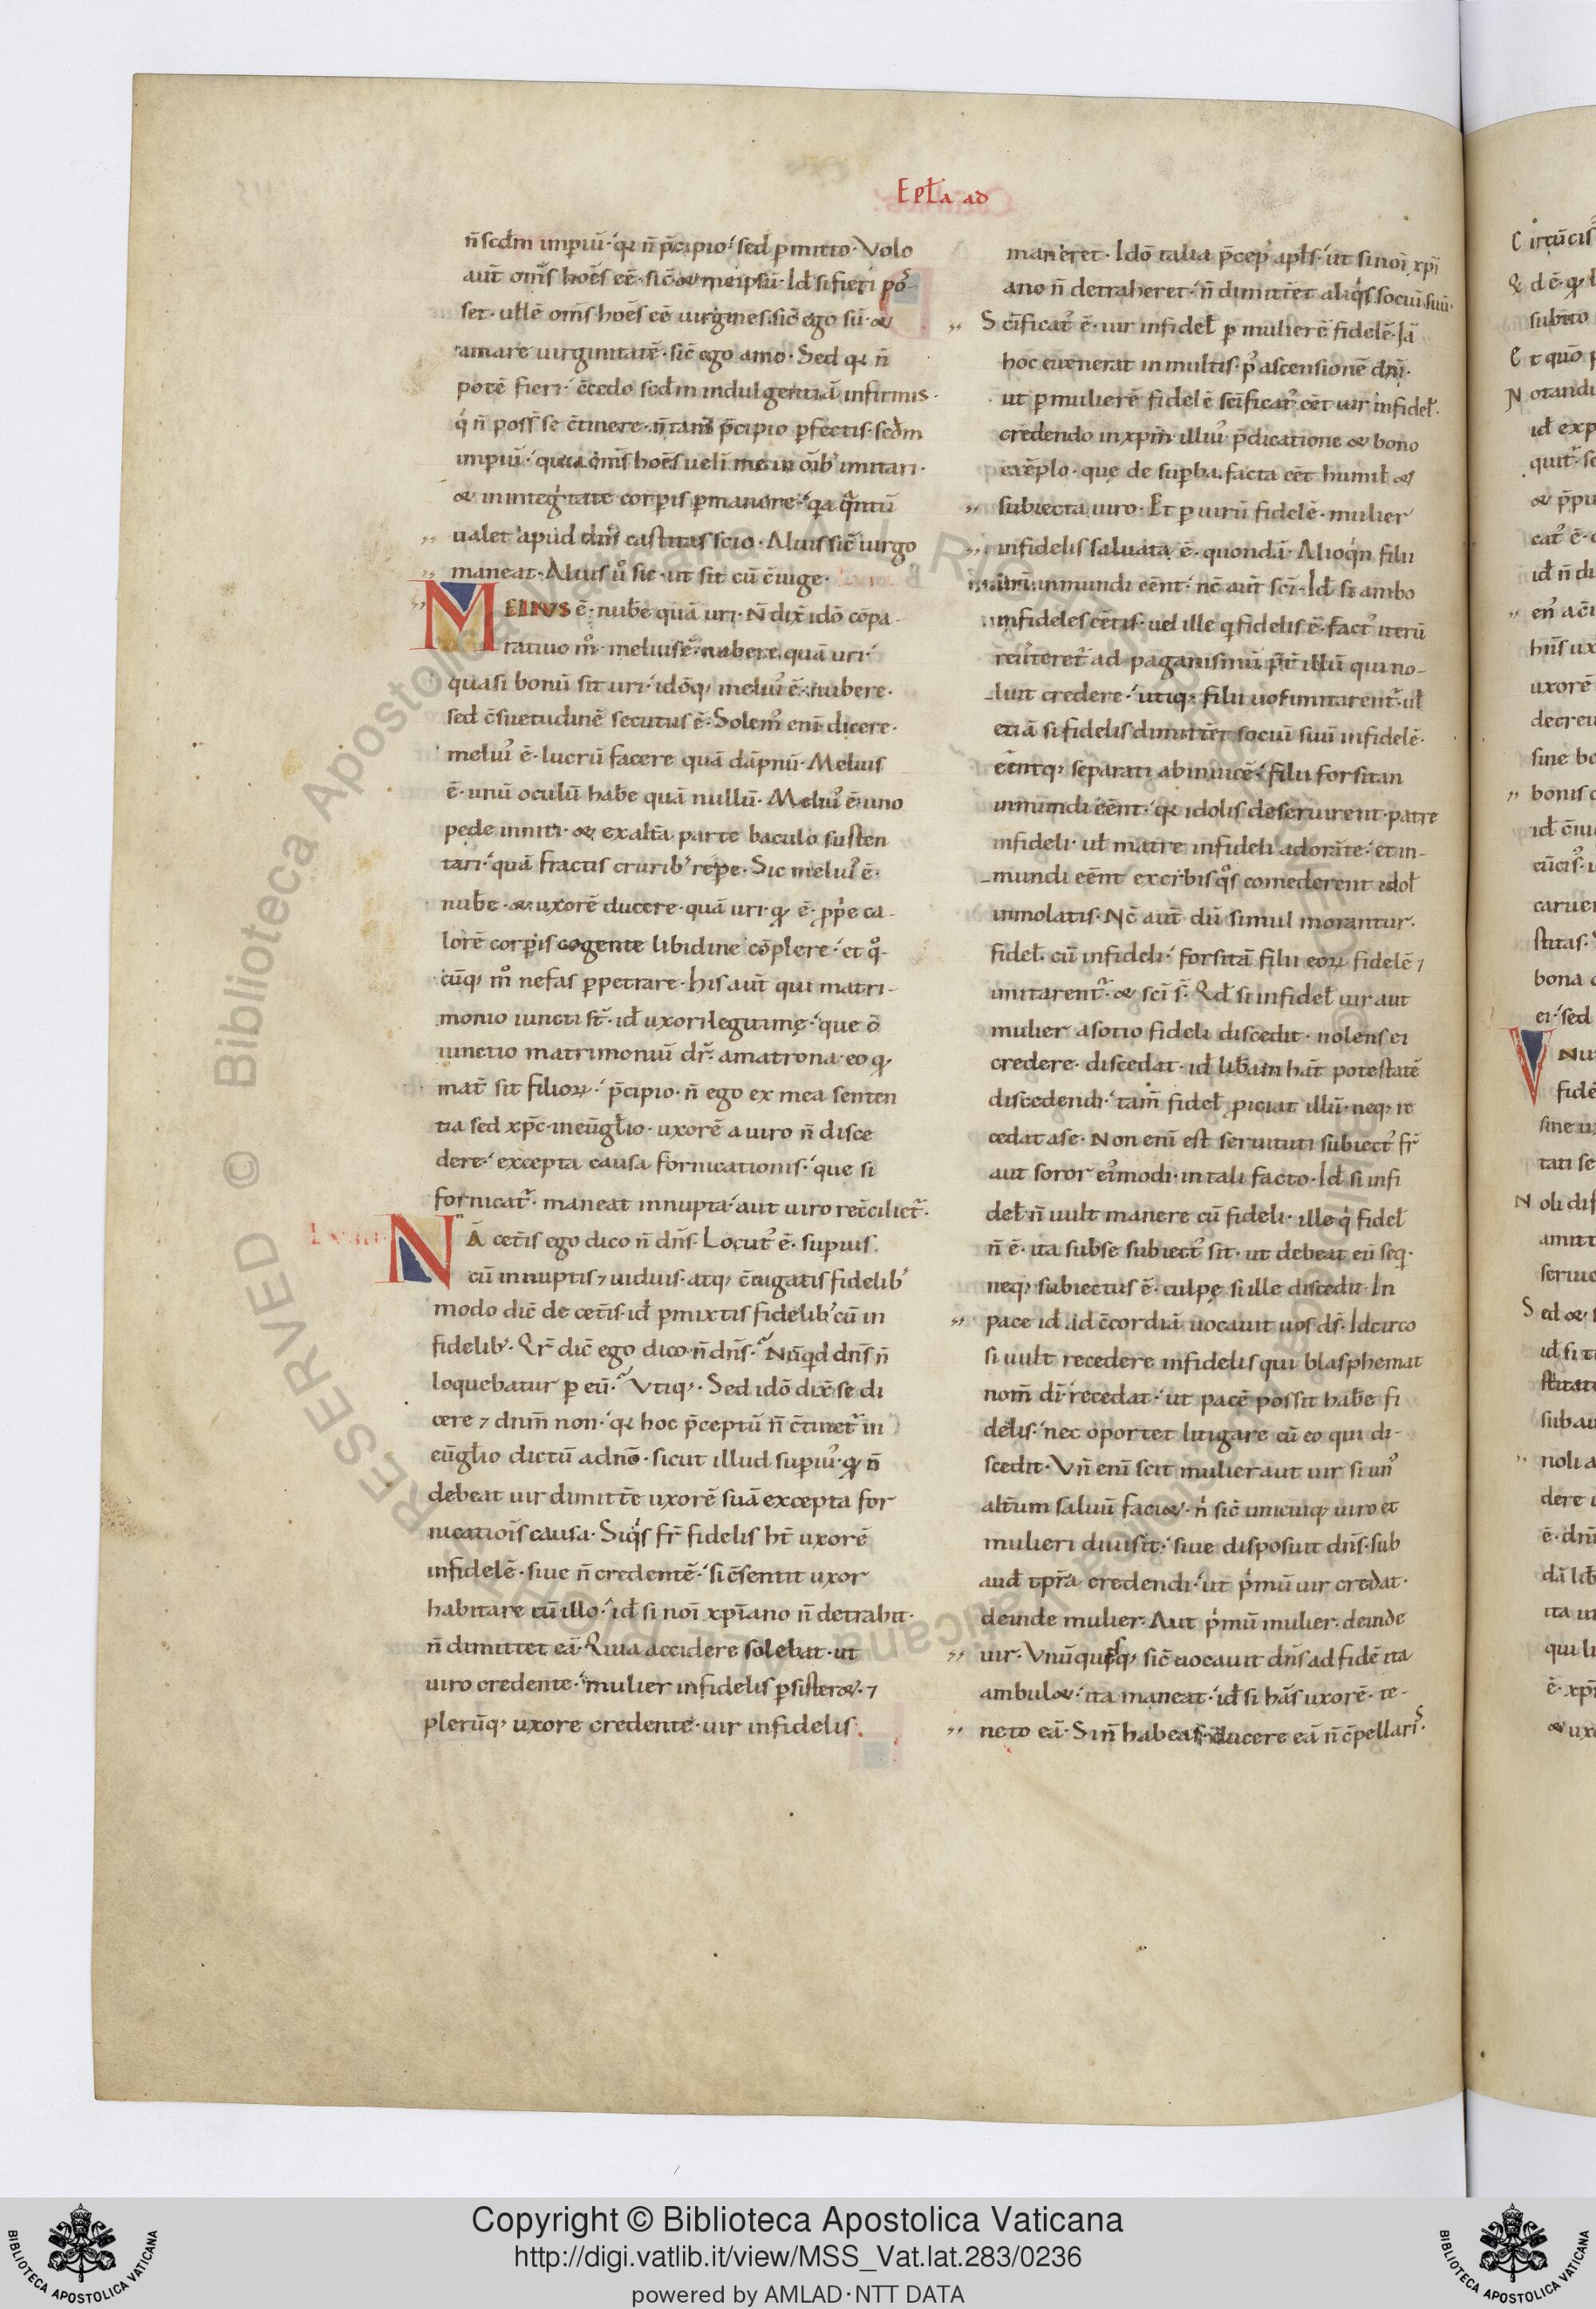 Epła ad
n̄ scd̄m imperiū· qꝛ n̄ p̄cipio· sed ꝑmitto· Volo
aut̄ om̄s hoēs eē· sic̄ & meipsū· Id̄ si fieri pos-
set· ułlē om̄s hoēs eē uirgines· sic̄ ego sū· &
amare uirginitatē· sic̄ ego amo· Sed qꝛ n̄
potē fieri· c̄cedo scd̄m indulgentiā infirmis·
q̇ n̄ poss̄ se c̄tinere· n̄ tam̄ p̄cipio ꝑfectis· scd̄m
impiū· quia om̄s hoēs uelī me in oīb; imitari·
& in integritate corꝑis ꝑmanere· qa q̄ntū
ualet apud dm̄ castitas scio· Alius sic̄ uirgo
maneat· Alius u̾ sic· ut sit cū c̄iuge·
MELIVS ē· nub̄e quā uri· N̄ dix̄ idō cōpa-
ratiuo m̊· melius ē· nubere quā uri·
quasi bonū sit uri· idōq; meliꝰ ē· nubere·
sed c̄suetudinē secutus ē· Solemꝰ enī dicere·
meliꝰ ē· lucrū facere quā dāpnū· Melius
ē· unū oculū hab̄e quā nullū· Meliꝰ ē· uno
pede inniti· & ex alt̄a parte baculo susten
tari· quā fractis crurib; reꝑe· Sic meliꝰ ē·
nub̄e· & uxorē ducere· quā uri· qđ ē· ꝓp̄e ca-
lorē corꝑis cogente libidine cōplere· et q̊-
cūq; m̊ nefas ꝑpetrare· his aut̄ qui matri-
monio iuncti st̄· id̄ uxori legitimę· que c̄
iunctio matrimoniū dr̄· a matrona· eo qđ
mat̄ sit filioꝝ· p̄cipio· n̄ ego ex mea senten
tia sed xp̄c· in eūgł̄io· uxorē a uiro n̄ disce
dere· excepta causa fornicationis· que si
fornicat̄· maneat innupta· aut uiro rec̄ciliet̄·
NĀ cet̄is ego dico n̄ dn̄s· Locutꝰ ē· suꝑius
cū innuptis ⁊ uiduis· atq; c̄iugatis fidelib;
modo dic̄ de cet̄is· id̄ ꝑmixtis fidelib; cū in
fidelib;· Qr̄ dic̄ ego dico· n̄ dn̄s· Nūqd dn̄s n̄
loquebatur ꝑ eū· Vtiq;· Sed idō dix̄ se di
cere ⁊ dnm̄ non· qꝛ hoc p̄ceptū n̄ c̄tinet̄ in
eūgł̄io dictū a dn̄o· sicut illud suꝑiꝰ· qđ n̄
debeat uir dimitt̄e uxorē suā excepta for
nicatiōis causa· Siq̇s fr̄ fidelis ht̄ uxorē
infidelē· siue n̄ credentē· si c̄sentit uxor
habitare cū illo· id̄ si noī xp̄iano n̄ detrahit·
n̄ dimittet eā· Quia accidere solebat· ut
uiro credente· mulier infidelis ꝑsister&· ⁊
plerūq; uxore credente· uir infidelis
maneret· Idō talia p̄cepꝰ apłs· ut si noī xpi
ano n̄ detraheret· n̄ dimitt̄et aliq̇s sociū suū·
Sc̄ificatꝰ ē· uir infideł ꝑ mulierē fidelē· Iā
hoc euenerat in multis· pꝰ ascensionē dn̄i·
ut ꝑ mulierē fidelē sc̄ificatꝰ eēt uir infideł·
credendo in xpm̄· illiꝰ p̄dicatione & bono
exēplo· quę de suꝑba facta eēt humił· &
subiecta uiro· Et ꝑ uirū fidelē· mulier
infidelis saluata ē· quondā· Alioq̇n filii
uri inmundi eēnt· nc̄ aut̄ sc̄i· Id̄ si ambo
infideles eētis· uel ille q̇ fidelis ē· factꝰ iterū
reūteret̄ ad paganismū ꝓt̄ illū qui no-
luit credere· utiq; filii uos imitarent̄· uł
etiā si fidelis dimitt̄et sociū suū infidelē·
eēntq; separati ab inuicē· filii forsitan
inmundi eēnt· qꝛ idolis deseruirent· patre
infideli· uł matre infideli adorāte· et in-
mundi eēnt ex cibis q̊s comederent idoł
inmolatis· Nc̄ aut̄ dū simul morantur·
fideł· cū infideli· forsitā filii eoꝝ fidelē ⁊
imitarent̄· & sc̄i s̄· Qd̄ si infideł uir aut
mulier a sotio fideli discedit· nolens ei
credere· discedat· id̄ lib̄am hāt potestatē
discedendi· tam̄ fideł ꝓiciat illū· neq; re
cedat a se· Non enī est seruituti subiectꝰ fr̄
aut soror eiꝰmodi· in tali facto· Id̄ si infi
deł· n̄ uult manere cū fideli· ille q̇ fideł
n̄ ē· ita sub se subiectꝰ sit· ut debeat eū seq·
neq; subiectus ē· culpę si ille discedit· In
pace id̄ ad c̄cordiā uocauit uos ds̄· Idcirco
si uult recedere infidelis qui blasphemat
nom̄ di· recedat· ut pacē possit hab̄e fi
delis· nec oportet litigare cū eo qui di-
scedit· Vn̄ enī scit mulier aut uir si unꝰ
alt̄um saluū faci&· n̄ sic̄ unicuiq; uiro et
mulieri diuisit· siue disposuit dn̄s· sub
aud̄ tp̄ra credendi· ut p̄mū uir credat·
deinde mulier· Aut p̄mū mulier· deinde
uir· Vnūquēq; sic̄ uocauit dn̄s ad fidē ita
ambul&· ita maneat· id̄ si hās uxorē· te-
neto eā· Sin̄ habeas· ducere eā n̄ c̄pellaris·
Copyright © Biblioteca Apostolica Vaticana
http://digi.vatlib.it/view/MSS_Vat.lat.283/0236
powered by AMLAD·NTT DATA